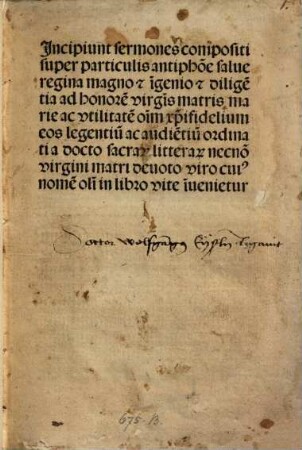 Incipiunt sermones compositi
super particulis antiphōe salue
regina magno ⁊ īgenio ⁊ diligē
tia ad honorē virgīs matris ma
rie ac vtilitatē oīm xp̄ifidelium
eos legentiū ac audiētiū ordina
ti a docto sacraꝝ litteraꝝ necnō
virgini matri deuoto viro cuiꝰ
nomē olī in libro vite īuenietur
Doctor Wolfgangg
675-B.